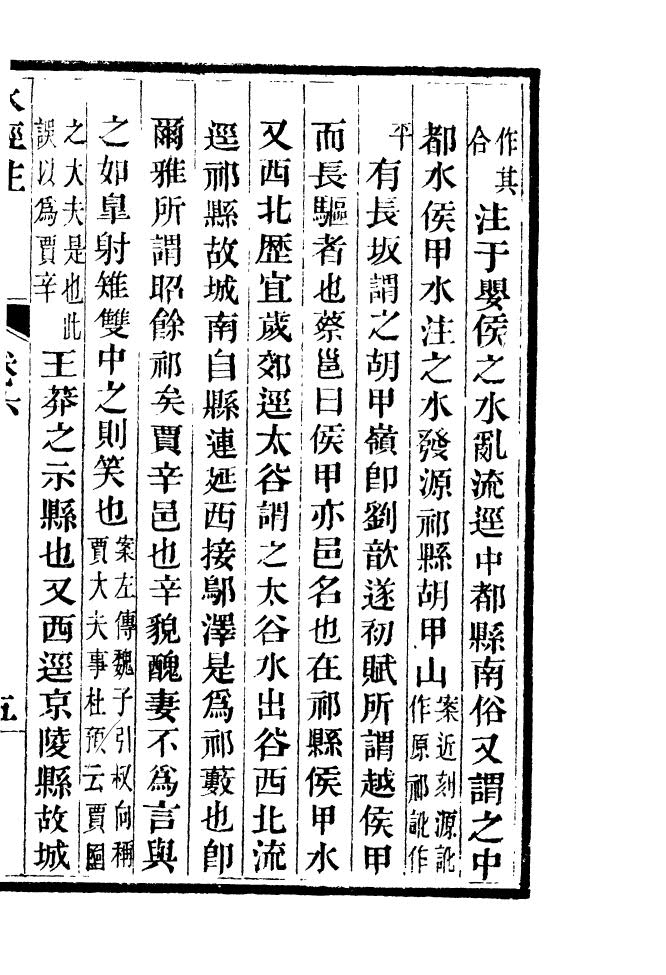 作其合注于嬰侯之水亂流逕中都縣南俗又謂之中
都水侯甲水注之水發源祁縣胡甲山案近刻源訛作原祁訛作
平有長坂謂之胡甲嶺卽劉歆遂初賦所謂越侯甲
而長驅者也蔡邕曰侯甲亦邑名也在祁縣侯甲水
又西北歴宜歲郊逕太谷謂之太谷水出谷西北流
逕祁縣故城南自縣連延西接鄔澤是爲祁藪也卽
爾雅所謂昭餘祁矣賈辛邑也辛貌醜妻不爲言與
之如臯射雉雙中之則笑也案左傳魏子引叔向稱賈大夫事杜預云賈國
之大夫是也此誤以爲賈辛王莽之示縣也又西逕京陵縣故城
水經注
卷六
五